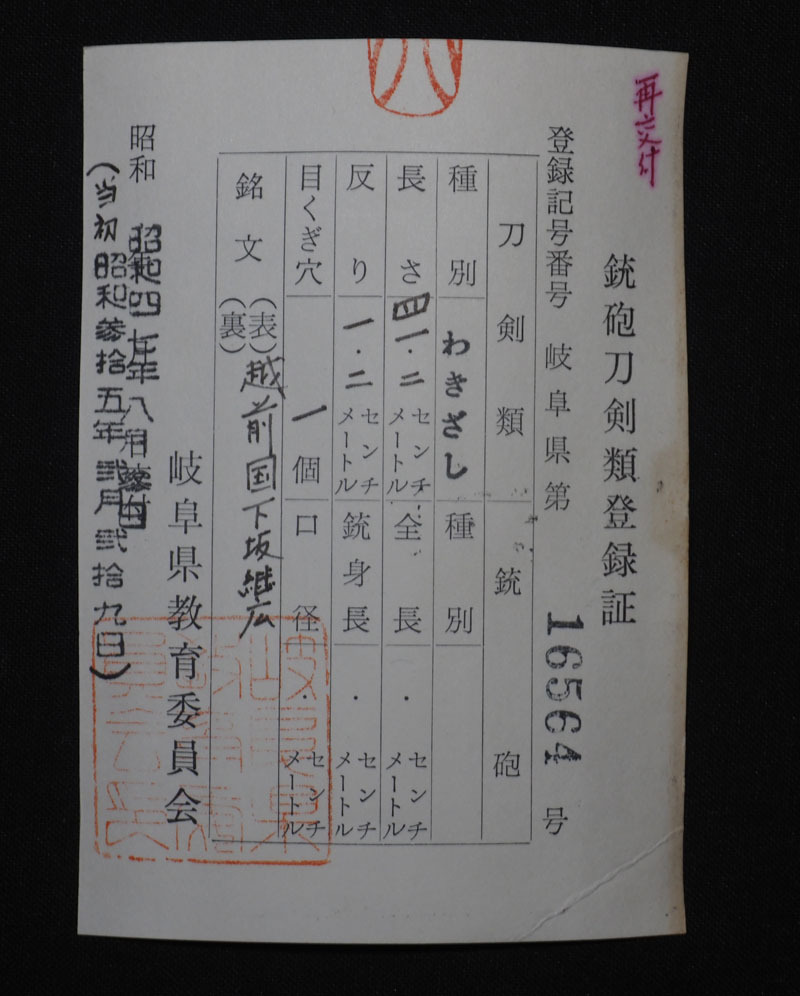 再交付
銃砲刀剣類登録証
登録記号番号 岐阜県第 16564 号
刀剣類 銃砲
種別 わきざし 種別
長さ 四一・二 センチメートル 全長 ・ センチメートル
反り 一・二 センチメートル 銃身長 ・ センチメートル
目くぎ穴 一個 口径 ・ センチメートル
銘文 (表) 越前国下坂継広
(裏)
岐阜県教育委員会
昭和 昭和四七年八月
(当初昭和参拾五年弐月弐拾九日)